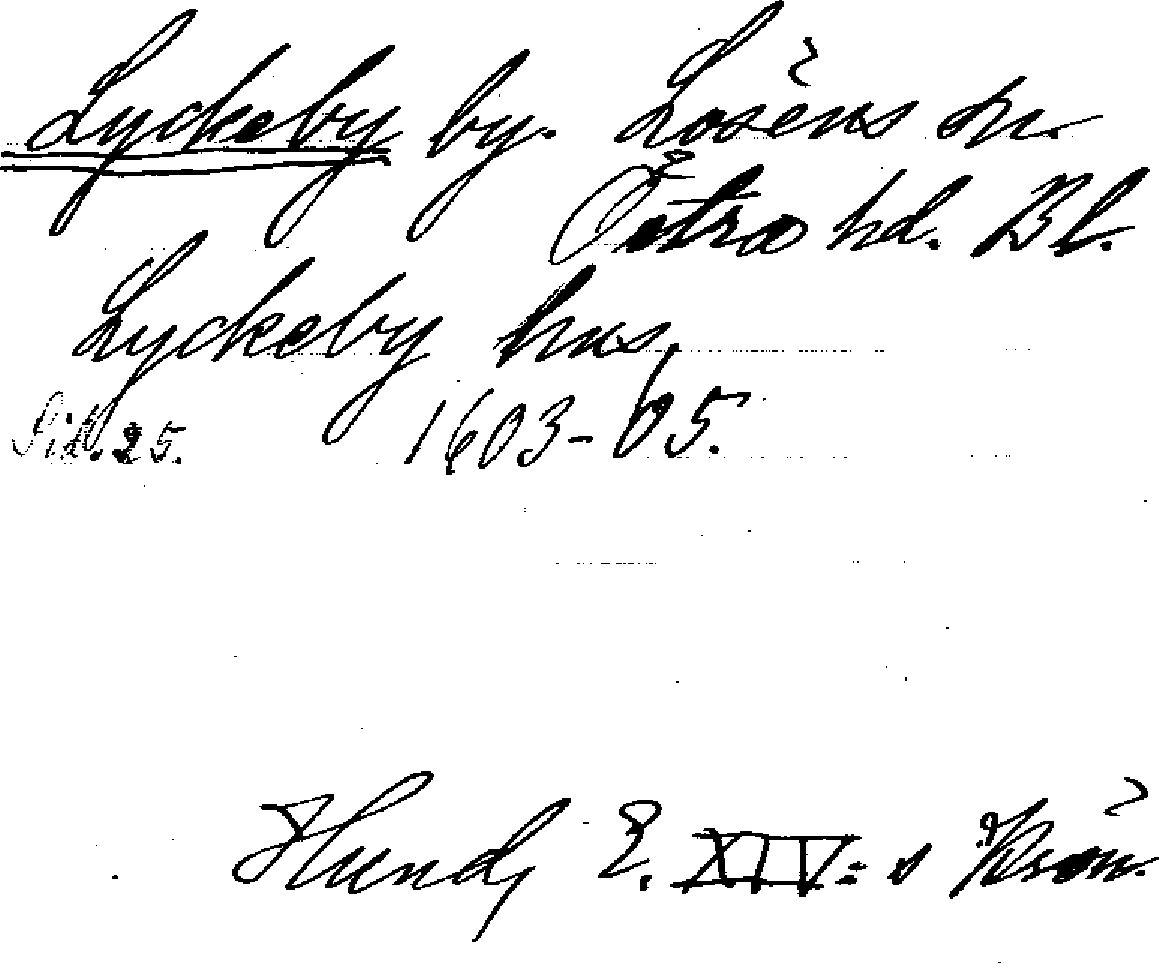 Lyckeby by. Lösens sn.
Östra hd. Bl.
Lyckeby hus,
Sid. 25. 1603-05.
Hund, E. XIV:s Krön.